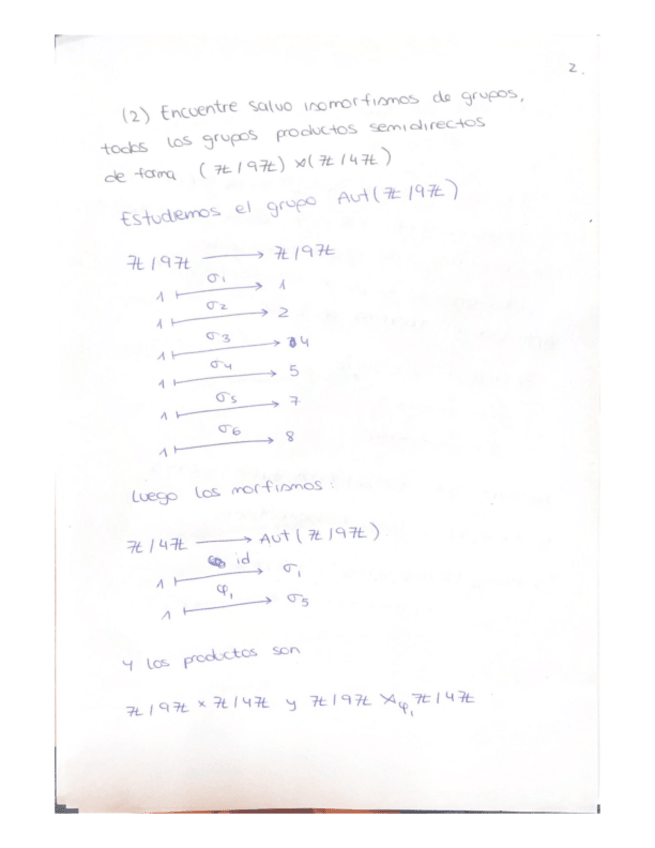 2.
(2) Encuentre salvo isomorfismos de grupos,
todos los grupos productos semidirectos
de forma (ℤ/9ℤ) ⋊ (ℤ/4ℤ)
Estudemos el grupo Aut(ℤ/9ℤ)
ℤ/9ℤ ⟶ ℤ/9ℤ
σ₁
1 ⟼ 1
σ₂
1 ⟼ 2
σ₃
1 ⟼ 4
σ₄
1 ⟼ 5
σ₅
1 ⟼ 7
σ₆
1 ⟼ 8
Luego los morfismos:
ℤ/4ℤ ⟶ Aut(ℤ/9ℤ)
id
1 ⟼ σ₁
φ₁
1 ⟼ σ₅
Y los productos son
ℤ/9ℤ × ℤ/4ℤ y ℤ/9ℤ ⋊φ₁ ℤ/4ℤ